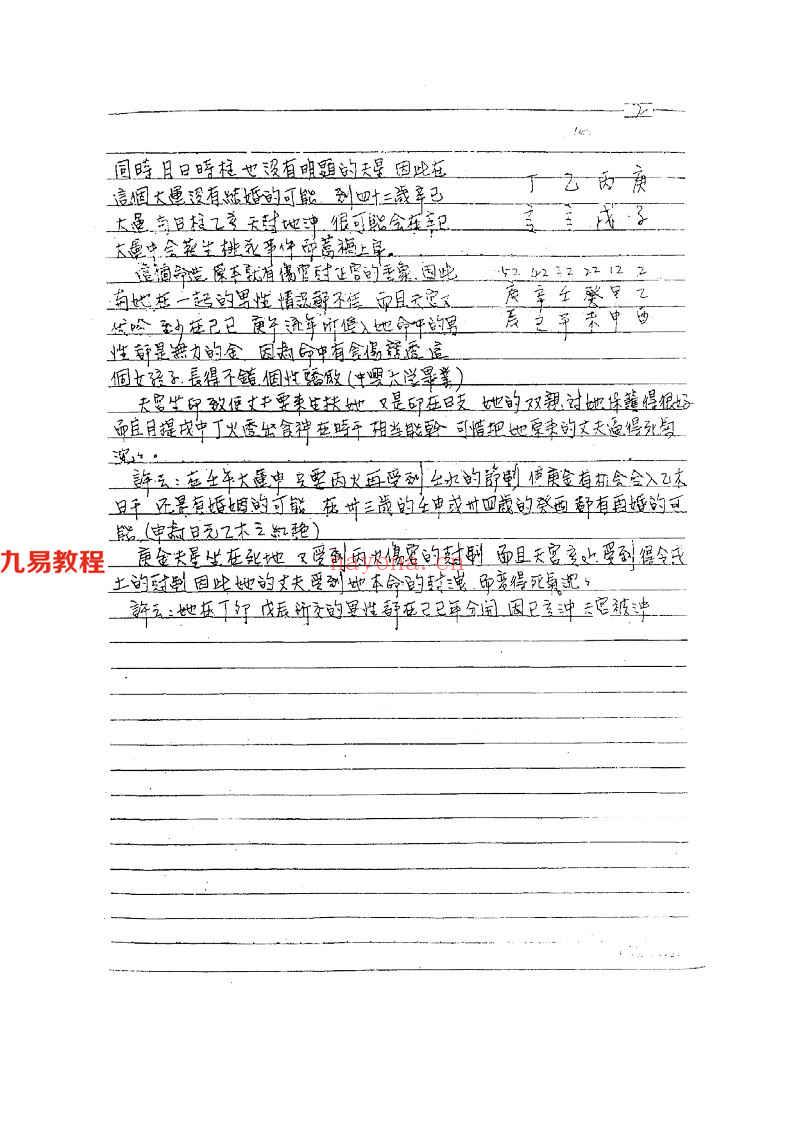 同時月日時柱也沒有明顯的夫星 因此在
這個大運沒有結婚的可能 到四十二歲辛巳
大運 與日柱乙亥天尅地沖 很可能會在辛巳
大運中會發生桃花事件
這個命造 原本就有傷官尅正官的 因此
與她在一起的男性 情況都不佳 而且夫宮又
在己巳 庚午流年所侵入她命中的男
性都是無力的金 因為命中有食傷 這
個女孩子長得不錯 個性驕傲(中興大学畢業)
夫宮坐印 致使丈夫要來生扶她 又是印在日支 她的双親討她保護得很好
而且月提戌中丁火透出食神在時干 相當能幹 可惜把她原來的丈夫逼得死氣
沉沉。
許云：在壬午大運中 只要丙火再受到壬水的節制 使庚金有机會合入乙木
日干 还是有婚姻的可能 在卅三歲的壬申或卅四歲的癸酉 都有再婚的可
能,(申為日元乙木之紅艷)
庚金夫星坐在死地 又受到丙火傷官的尅制 而且夫宮亥水受到得令戌
土的尅制 因此她的丈夫受到她本命的尅洩 而变得死氣沉沉
許云：她在丁卯 戊辰所交的異性 都在己巳年分開 因巳亥沖 夫宮被沖
丁 乙 丙 庚
亥 亥 戌 子
52 42 32 22 12 2
庚 辛 壬 癸 甲 乙
辰 巳 午 未 申 酉
九易教程
nayona.cn